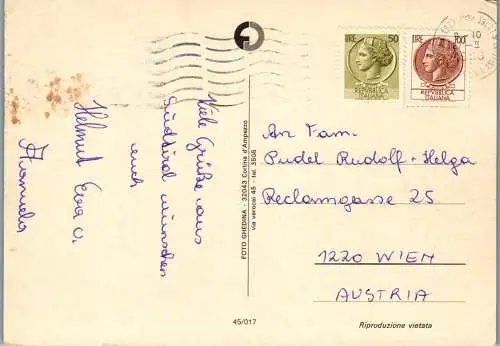 Viele Grüße aus
Südtirol wünschen
euch
Helmut Eva u.
Manuela
FOTO GHEDINA - 32043 Cortina d'Ampezzo
via verocai 45 - tel. 3506
45/017
LIRE 50
REPVBBLICA
ITALIANA
LIRE 100
REPVBBLICA
ITALIANA
An Fam.
Pudel Rudolf + Helga
Reclamgasse 25
1220 WIEN
AUSTRIA
Riproduzione vietata